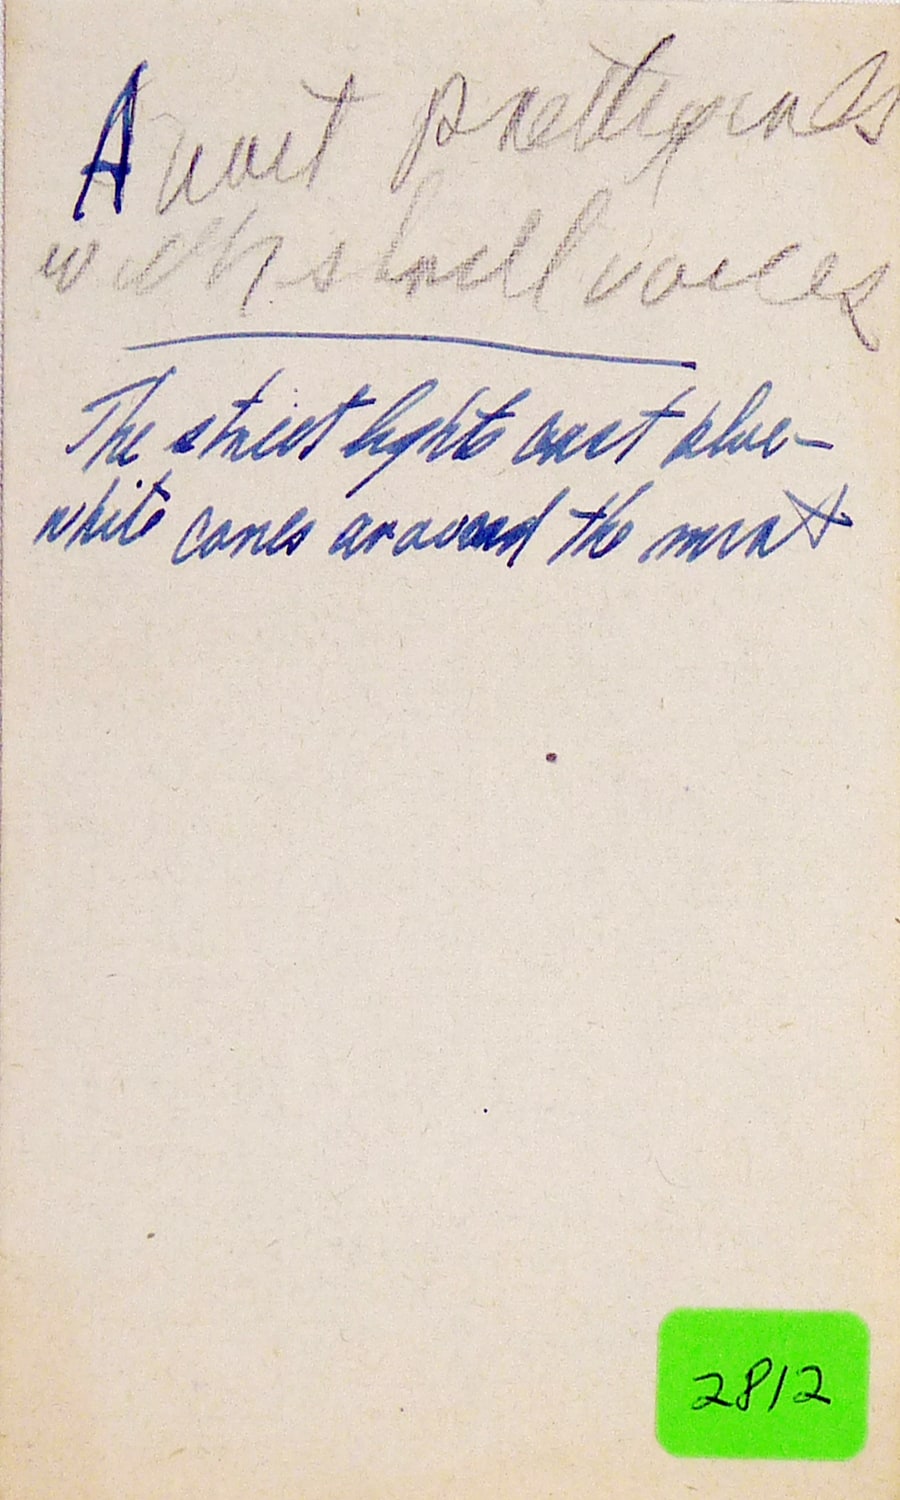 A
with shrill voices
The street lights cast blue-
white cones around the
2812